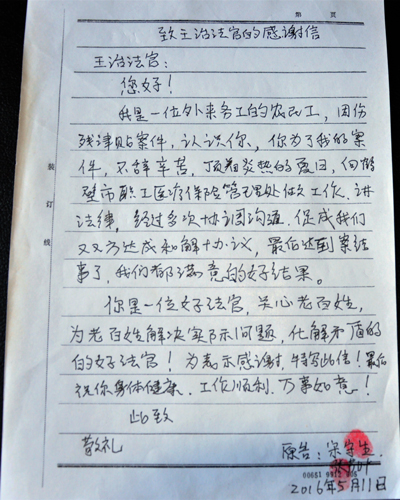 第 页
致王治法官的感谢信
王治法官:
您好!
我是一位外来务工的农民工,因伤
残津贴案件,认识你、你为了我的案
件,不辞辛苦,顶着炎热的夏日,向鹤
壁市职工医疗保险管理处做工作.讲
法律,经过多次协调沟通.促成我们
双方达成和解协议,最后达到案结
事了,我们都满意的好结果。
你是一位好法官,关心老百姓,
为老百姓解决实际问题,化解矛盾的
的好法官!为表示感谢,特写此信!最后
祝你身体健康.工作顺利.万事如意!
此致
敬礼
原告:宋守生
2016年5月11日
装
订
线